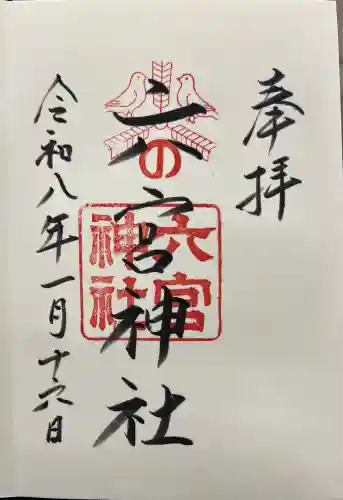 奉拝
六の宮神社
六宮
神社
令和八年一月十六日